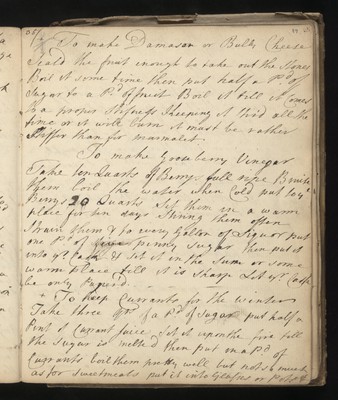 To make Damason or Bulls Cheese
Scald the fruit enough to take out the Stones
Boil it some time then put half a Pd of
Sugar to a Pd of fruit Boil it till it Comes
to a proper Stifness Keeping it Stird all the
time or it will burn it must be rather
Stiffer than for marmalet
To make Gooseberry Vinegar
Take Ten Quarts of Berrys full ripe Bruise
them boil the water when Cold put to ye
Berrys 20 Quarts Set them in a warm
place for ten days Stiring them often
Strain them & to every Gallon of Liquor put
one Pd of penny Sugar then put it
into ye Cask & Set it in the Sune or some
warm place till it is Sharp Let ye Cask
be only Paperd
To keep Currants for the winter
Take three of a Pd of Sugar put half a
Pint of Currant juice Set it upon the fire till
the Sugar is melted then put in a Pd of
Currants boil them pretty well but not so much
as for Sweetmeats put it into Glasses or Pots